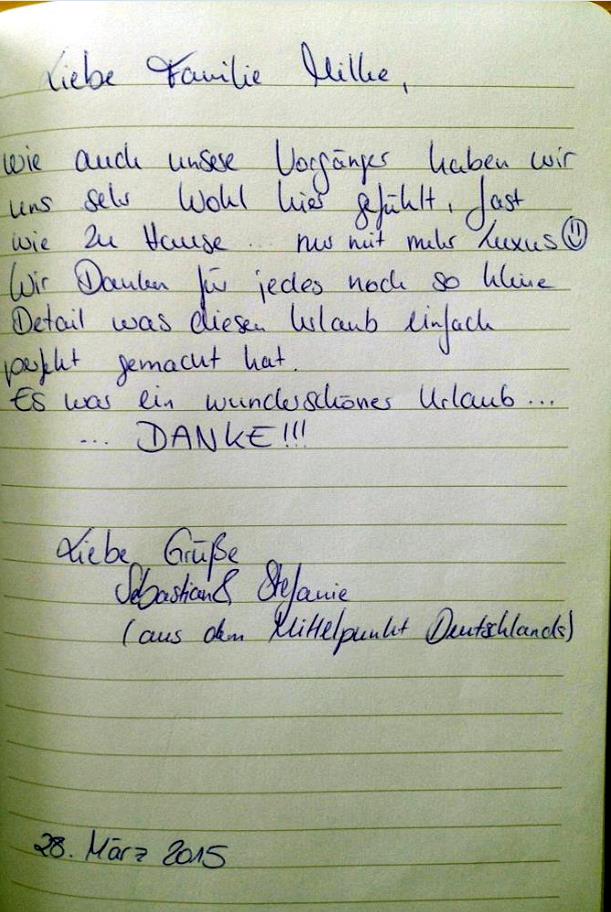 Liebe Familie Milke,
wie auch unsere Vorgänger haben wir
uns sehr Wohl hier gefühlt, fast
wie zu Hause ... nur mit mehr Luxus☺
Wir Danken für jedes noch so kleine
Detail was diesen Urlaub einfach
perfekt gemacht hat.
Es war ein wunderschöner Urlaub ...
... DANKE!!!
Liebe Grüße
Sebastian & Stefanie
(aus dem Mittelpunkt Deutschlands)
28. März 2015